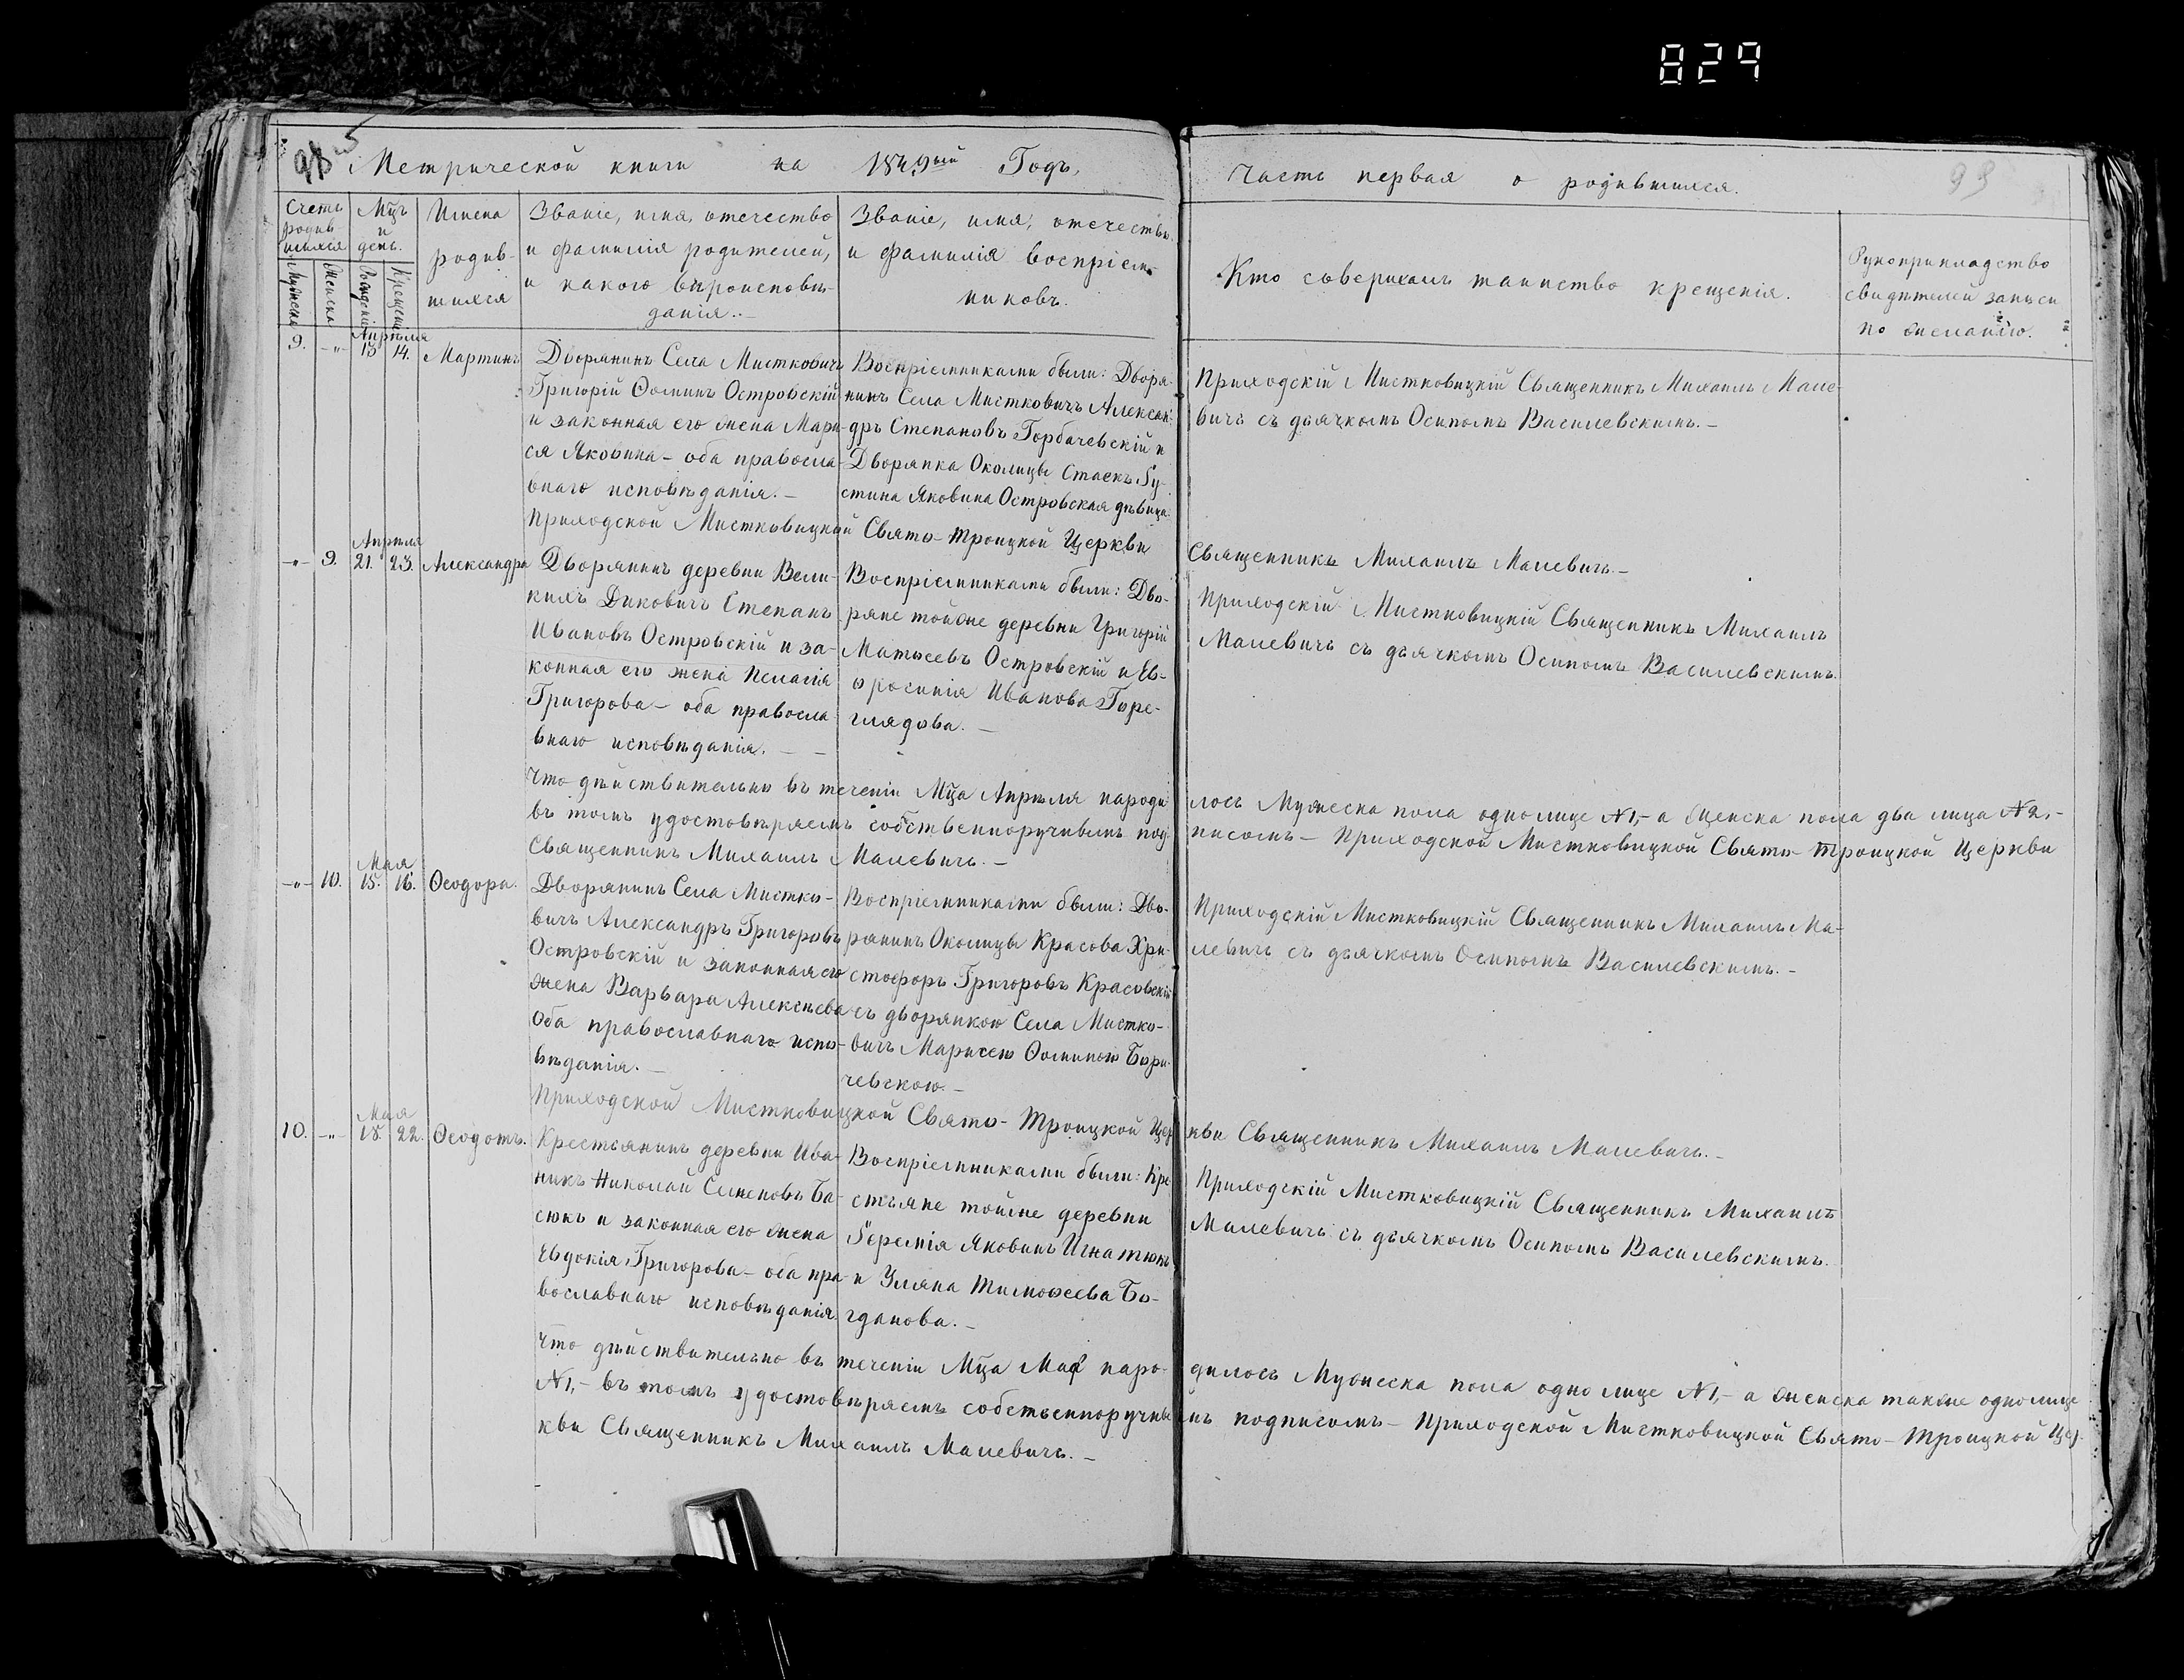 829
98
Метрической книги на 1849ый Годъ,
Часть первая о родившихся.
93
Счетъ родив шихся
Мужеска
Женска
Мцъ и день.
Рожденія
Крещенія
Имена
родив-
шихся
Званіе, имя, отечество
и фамилія родителей,
и какого вѣроисповѣ-
данія.
Званіе, имя, отечество
и фамилія воспріем-
никовъ.
Кто совершалъ таинство крещенія.
Рукоприкладство
свидѣтелей записи
по желанію.
9. -"-
Апрѣля
13 14.
Мартинъ
Дворянинъ Села Мистковичъ
Григорій Ѳоминъ Островскій
и законная его жена Мари-
ся Яковина - оба правосла-
внаго исповѣданія. -
Воспріемниками были: Дворя-
нинъ Села Мистковичъ Алексан-
дръ Степановъ Горбачевскій и
Дворянка Околицы Стаекъ Іу-
стина Яковина Островская дѣвица.
Приходскій Мистковицкій Священникъ Михаилъ Мале-
вичъ съ дьячкомъ Осипомъ Василевскимъ. -
Приходской Мистковицкой Свято-Троицкой Церкви
Священникъ Михаилъ Малевичъ. -
-"- 9.
Апрѣля
21. 23.
Александра
Дворянинъ деревни Вели-
кихъ Диковичъ Степанъ
Ивановъ Островскій и за-
конная его жена Пелагія
Григорова - оба правосла-
внаго исповѣданія. -
Воспріемниками были: Дво-
ряне тойже деревни Григорій
Матысевъ Островскій и Ев-
фросинія Иванова Горе-
глядова. -
Приходскій Мистковицкій Священникъ Михаилъ
Малевичъ съ дьячкомъ Осипомъ Василевскимъ.
Что дѣйствительно въ теченіи Мца Апрѣля народи
лось Мужеска пола одно лице №1,- а Женска пола два лица №2,-
въ томъ удостовѣряемъ собственноручнымъ под-
писомъ - Приходской Мистковицкой Свято-Троицкой Церкви
Священникъ Михаилъ Малевичъ. -
-"- 10.
Мая
15. 16.
Ѳеодора.
Дворянинъ Села Мистко-
вичъ Александръ Григоровъ
Островскій и законная его
жена Варвара Алексѣева
Оба православнаго испо-
вѣданія. -
Воспріемниками были: Дво-
рянинъ Околицы Красова Хри-
стофоръ Григоровъ Красовскій
съ дворянкою Села Мистко-
вичъ Марисею Ѳоминою Бори-
чевскою. -
Приходскій Мистковицкій Священникъ Михаилъ Ма-
левичъ съ дьячкомъ Осипомъ Василевскимъ. -
Приходской Мистковицкой Свято-Троицкой Цер
кви Священникъ Михаилъ Малевичъ. -
10. -"-
Мая
18. 22.
Ѳеодотъ.
Крестьянинъ деревни Ива-
никъ Николай Семеновъ Ба-
сюкъ и законная его жена
Евдокія Григорова - оба пра-
вославнаго исповѣданія.
Воспріемниками были: Кре-
стьяне тойже деревни
Іеремія Яковинъ Игнатюкъ
и Уляна Тимоѳеева Бо-
гданова. -
Приходскій Мистковицкій Священникъ Михаилъ
Малевичъ съ дьячкомъ Осипомъ Василевскимъ.
Что дѣйствительно въ теченіи Мца Мая наро-
дилось Мужеска пола одно лице №1,- а женска также одно лице
№1,- въ томъ удостовѣряемъ собственноручны
мъ подписомъ - Приходской Мистковицкой Свято-Троицкой Цер-
кви Священникъ Михаилъ Малевичъ. -